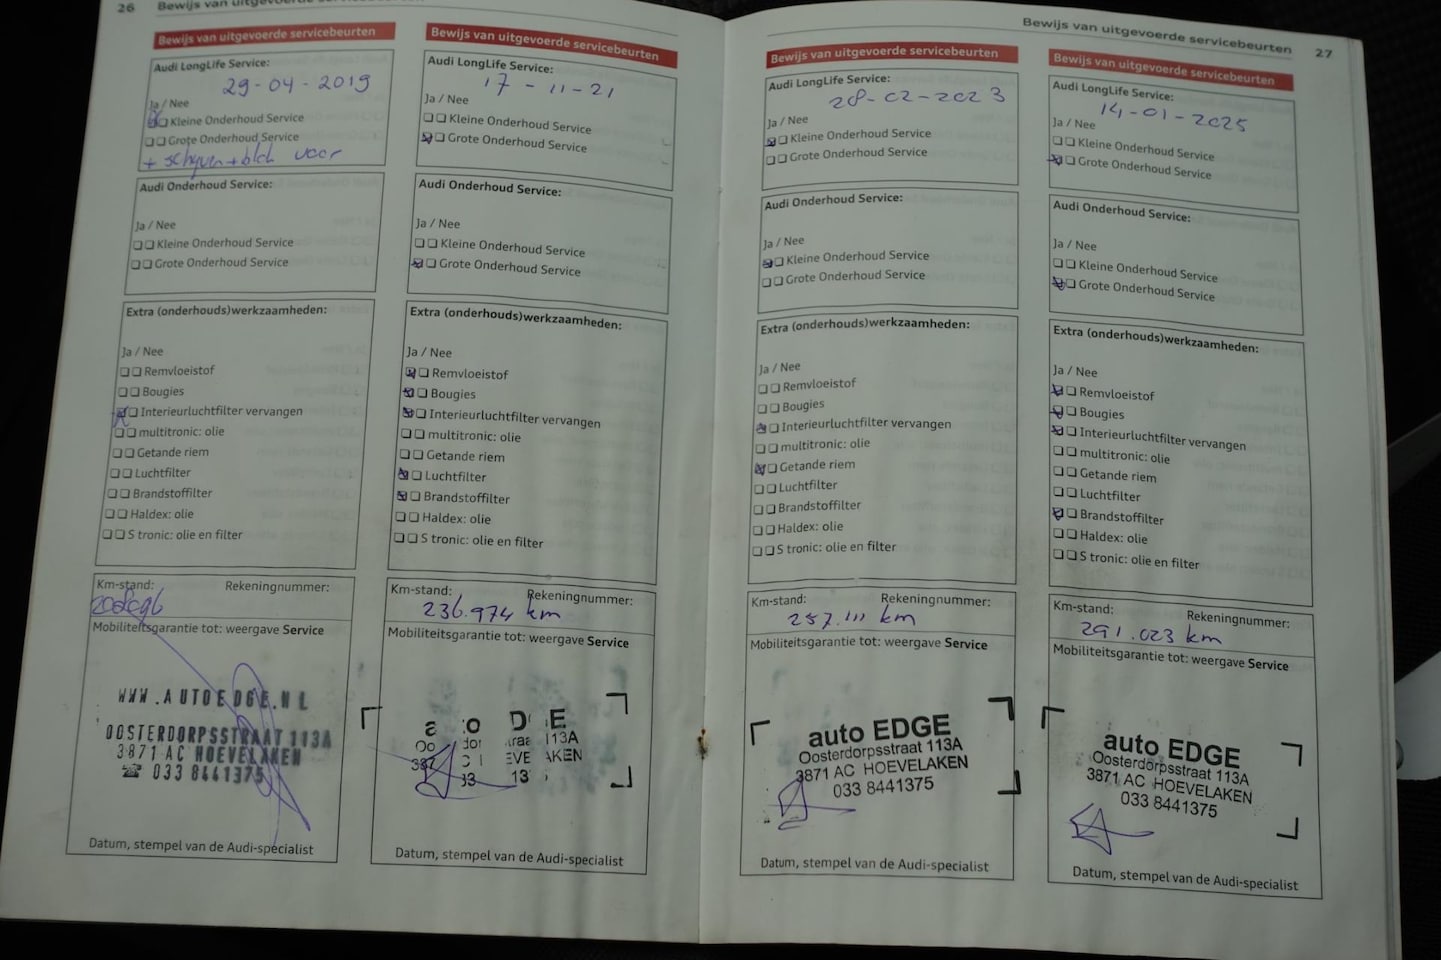 26 Bewijs van uitgevoerde servicebeurten
Bewijs van uitgevoerde servicebeurten
Audi LongLife Service:
29-04-2019
Ja / Nee
Kleine Onderhoud Service
Grote Onderhoud Service
voor
Audi Onderhoud Service:
Ja / Nee
Kleine Onderhoud Service
Grote Onderhoud Service
Extra (onderhouds)werkzaamheden:
Ja / Nee
Remvloeistof
Bougies
Interieurluchtfilter vervangen
multitronic: olie
Getande riem
Luchtfilter
Brandstoffilter
Haldex: olie
S tronic: olie en filter
Km-stand: Rekeningnummer:
Mobiliteitsgarantie tot: weergave Service
WWW.AUTOEDGE.NL
OOSTERDORPSSTRAAT 113A
3871 AC HOEVELAKEN
☎ 033 8441375
Datum, stempel van de Audi-specialist
Bewijs van uitgevoerde servicebeurten
Audi LongLife Service:
17-11-21
Ja / Nee
Kleine Onderhoud Service
Grote Onderhoud Service
Audi Onderhoud Service:
Ja / Nee
Kleine Onderhoud Service
Grote Onderhoud Service
Extra (onderhouds)werkzaamheden:
Ja / Nee
Remvloeistof
Bougies
Interieurluchtfilter vervangen
multitronic: olie
Getande riem
Luchtfilter
Brandstoffilter
Haldex: olie
S tronic: olie en filter
Km-stand: Rekeningnummer:
236.974 km
Mobiliteitsgarantie tot: weergave Service
Datum, stempel van de Audi-specialist
Bewijs van uitgevoerde servicebeurten 27
Bewijs van uitgevoerde servicebeurten
Audi LongLife Service:
28-02-2023
Ja / Nee
Kleine Onderhoud Service
Grote Onderhoud Service
Audi Onderhoud Service:
Ja / Nee
Kleine Onderhoud Service
Grote Onderhoud Service
Extra (onderhouds)werkzaamheden:
Ja / Nee
Remvloeistof
Bougies
Interieurluchtfilter vervangen
multitronic: olie
Getande riem
Luchtfilter
Brandstoffilter
Haldex: olie
S tronic: olie en filter
Km-stand: Rekeningnummer:
257.111 km
Mobiliteitsgarantie tot: weergave Service
auto EDGE
Oosterdorpsstraat 113A
3871 AC HOEVELAKEN
033 8441375
Datum, stempel van de Audi-specialist
Bewijs van uitgevoerde servicebeurten
Audi LongLife Service:
14-01-2025
Ja / Nee
Kleine Onderhoud Service
Grote Onderhoud Service
Audi Onderhoud Service:
Ja / Nee
Kleine Onderhoud Service
Grote Onderhoud Service
Extra (onderhouds)werkzaamheden:
Ja / Nee
Remvloeistof
Bougies
Interieurluchtfilter vervangen
multitronic: olie
Getande riem
Luchtfilter
Brandstoffilter
Haldex: olie
S tronic: olie en filter
Km-stand: Rekeningnummer:
291.023 km
Mobiliteitsgarantie tot: weergave Service
auto EDGE
Oosterdorpsstraat 113A
3871 AC HOEVELAKEN
033 8441375
Datum, stempel van de Audi-specialist